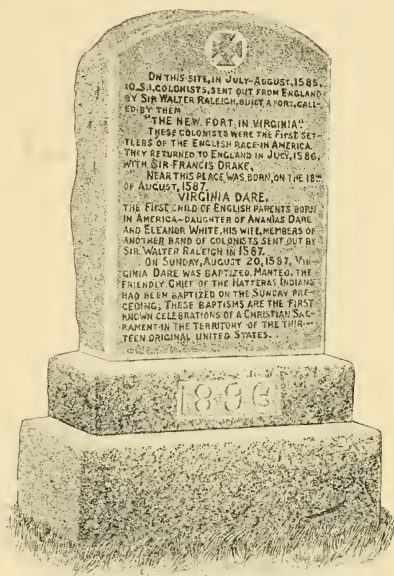 ON THIS SITE, IN JULY-AUGUST, 1585,
(O.S.), COLONISTS, SENT OUT FROM ENGLAND
BY SIR WALTER RALEIGH, BUILT A FORT, CALL-
ED BY THEM
"THE NEW FORT IN VIRGINIA."
THESE COLONISTS WERE THE FIRST SET-
TLERS OF THE ENGLISH RACE IN AMERICA.
THEY RETURNED TO ENGLAND IN JULY, 1586,
WITH SIR FRANCIS DRAKE.
NEAR THIS PLACE WAS BORN, ON THE 18TH
OF AUGUST, 1587,
VIRGINIA DARE,
THE FIRST CHILD OF ENGLISH PARENTS BORN
IN AMERICA—DAUGHTER OF ANANIAS DARE
AND ELEANOR WHITE, HIS WIFE, MEMBERS OF
ANOTHER BAND OF COLONISTS SENT OUT BY
SIR WALTER RALEIGH IN 1587.
ON SUNDAY, AUGUST 20, 1587, VIR-
GINIA DARE WAS BAPTIZED. MANTEO, THE
FRIENDLY CHIEF OF THE HATTERAS INDIANS
HAD BEEN BAPTIZED ON THE SUNDAY PRE-
CEDING. THESE BAPTISMS ARE THE FIRST
KNOWN CELEBRATIONS OF A CHRISTIAN SAC-
RAMENT IN THE TERRITORY OF THE THIR-
TEEN ORIGINAL UNITED STATES.
1896